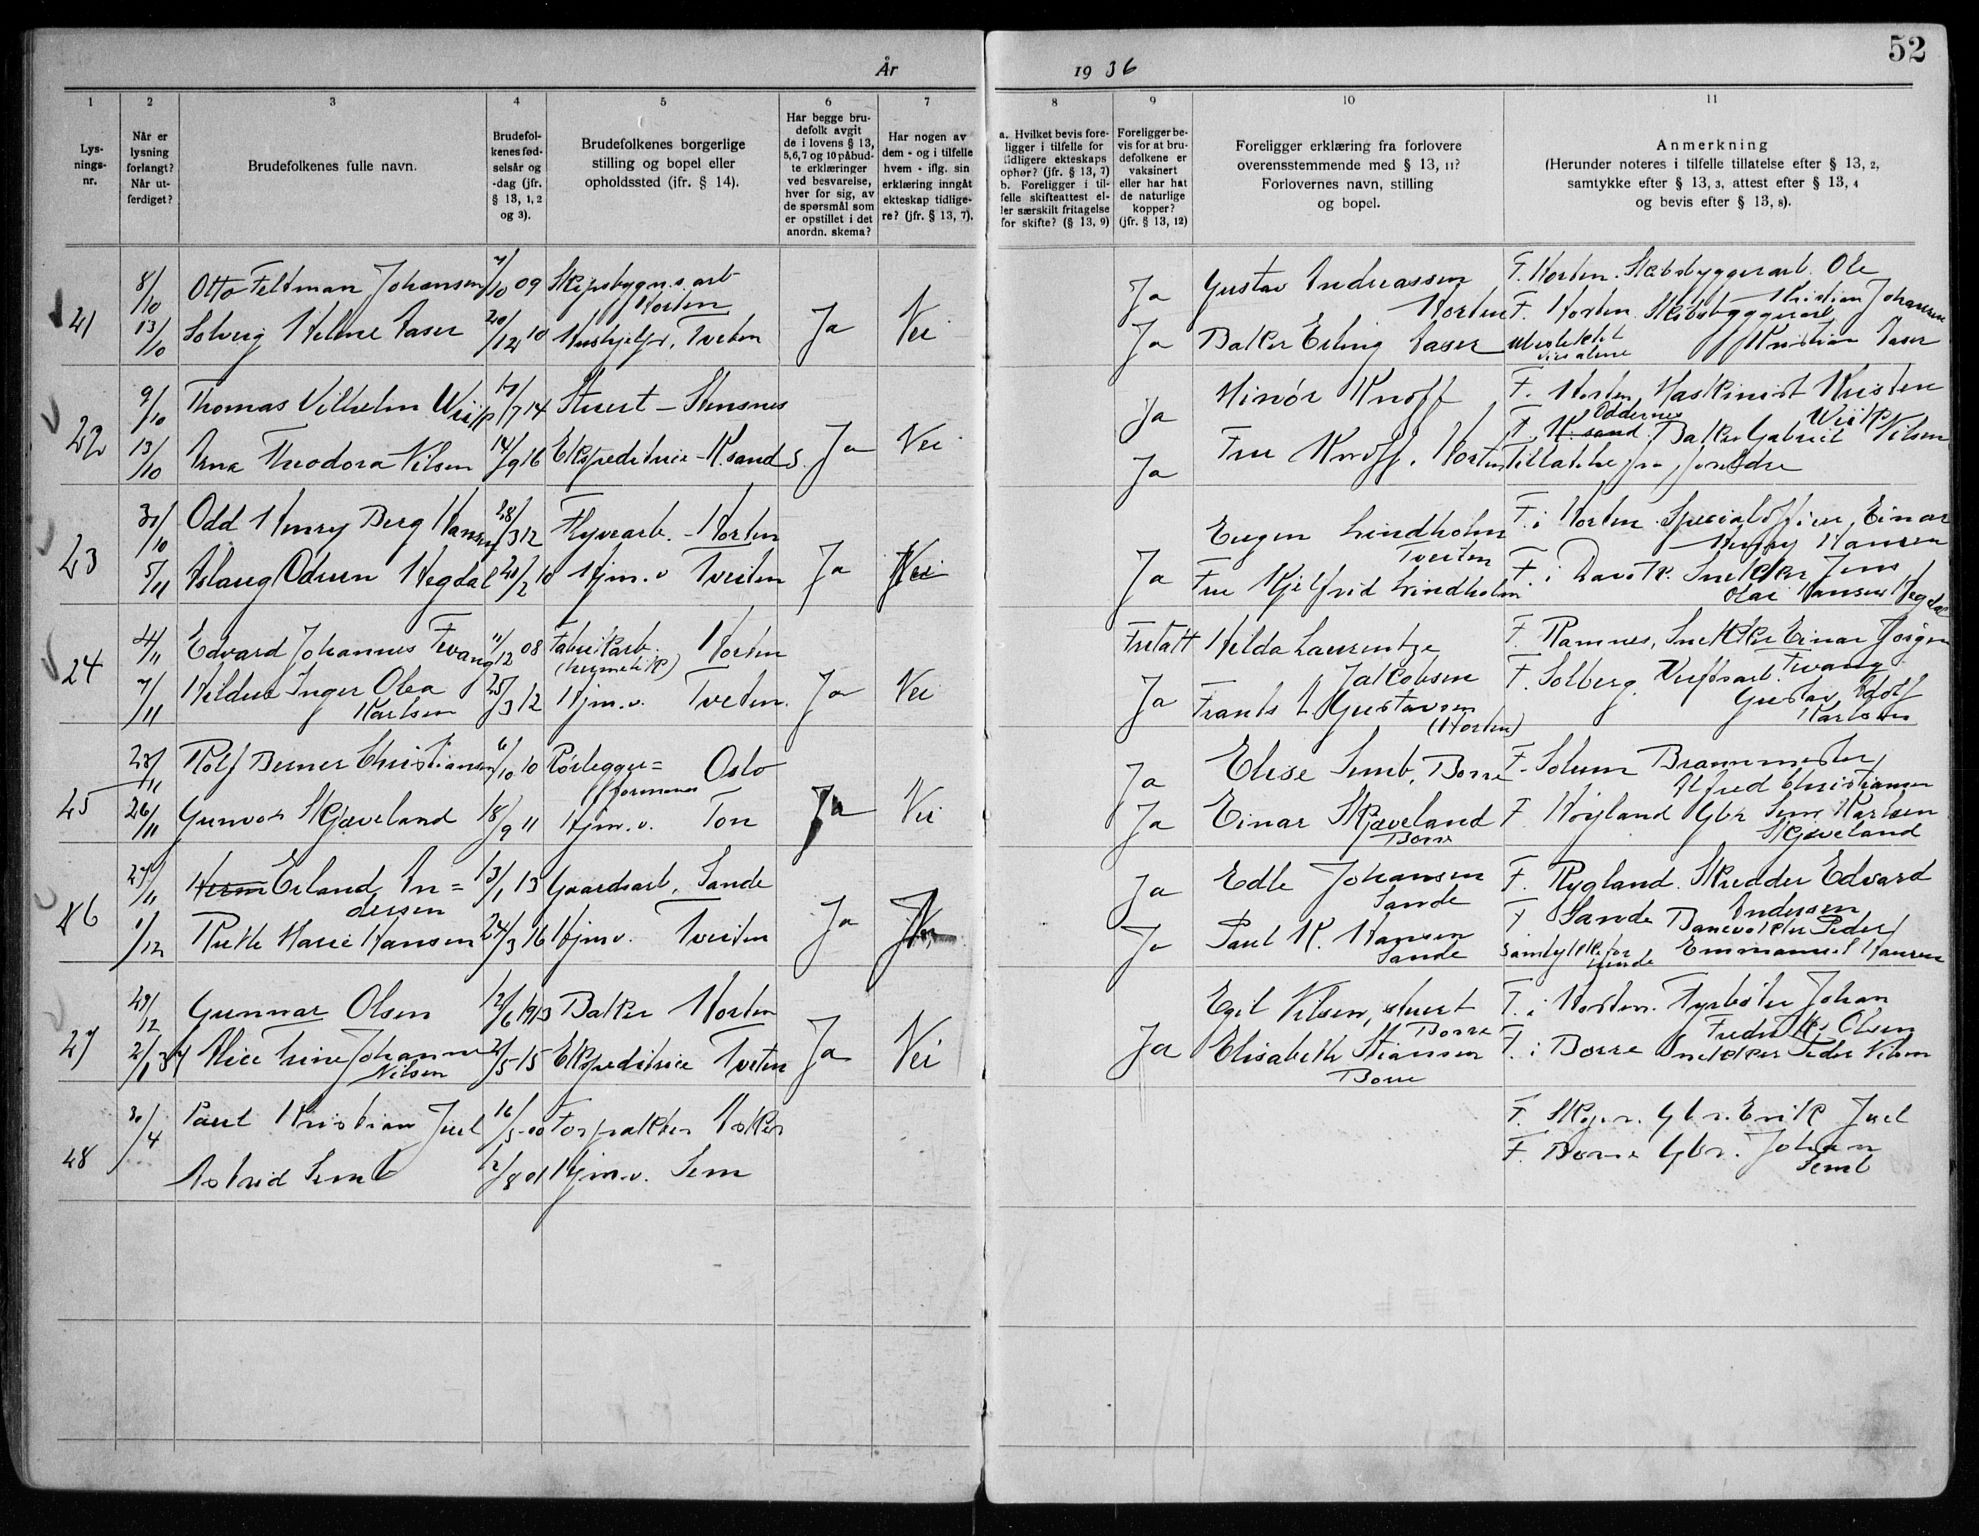 52
År 1936
1 2 3 4 5 6 7 8 9 10 11
Lys-
nings-
nr.
Når er
lysning
forlangt?
Når ut-
ferdiget?
Brudefolkenes fulle navn.
Brudefol-
kenes fød-
selsår og
-dag (jfr.
§ 13, 1, 2
og 3).
Brudefolkenes borgerlige
stilling og bopel eller
opholdssted (ifr. § 14).
Har begge bru-
defolk avgit
de i lovens § 13,
5,6,7 og 10 påbud-
te erklæringer
ved besvarelse,
hver for sig, av
de spørsmål som
er opstillet i det
anordn. skema?
Har nogen av
dem - og i tilfelle
hvem - iflg. sin
erklæring inngått
ekteskap tidlige-
re? (jfr. § 13, 7).
a. Hvilket bevis fore-
ligger i tilfelle for
tidligere ekteskaps
ophør? (jfr. § 13, 7)
b. Foreligger i til-
felle skifteattest el-
ler særskilt fritagelse
for skifte? (§ 13, 9)
Foreligger be-
vis for at bru-
defolkene er
vaksinert
eller har hat
de naturlige
kopper?
(jfr. § 13, 12)
Foreligger erklæring fra forlovere
overensstemmende med § 13, 11?
Forlovernes navn, stilling
og bopel.
Anmerkning
(Herunder noteres i tilfelle tillatelse efter § 13, 2,
samtykke efter § 13, 3, attest efter § 13, 4
og bevis efter § 13, 8).
21
8/10 Otto Feltman Johansen 7/10 09 Skipsbygn.s.arb
Horten
Ja Gustav Andreassen
Horten
F. Horten. Skibsbyggerarb. Ole
Kristian Johansen
13/10 Solveig Helene Aaser 20/12 10 Hushjelp, Tveten Ja Nei
Ja Baker Erling Aaser
F. Horten Skibsbyggerarb
Kristian Aaser
ubeslektet
22
9/10 Thomas Vilhelm Wiik 17/7 14 Stuert - Stensnes
Ja Minör Knoff
F. Horten Maskinist Kristen
Wiik
13/10 Arna Theodora Nilsen 14/9 16 Ekspeditrice - K.sand S. Ja Nei
Ja Fru Knoff, Horten
Oddernes
F. K.sand. Baker Gabriel Nilsen
Tillatelse fra foreldre
23
30/10 Odd Henry Berg Hansen 28/3 12 Flyvearb. - Horten
Eugen Lindholm
Tveiten
F. i Horten. Specialoffiser Einar
Henry Hansen
5/11 Aslaug Odrun Hegdal 21/2 10 Hjm.v Tveiten Ja Nei
Ja Fru Kjelfrid Lindholm
F. i Snekker Jens
Olai Hansen Hegdal
24
4/11 Edvard Johannes Fevang 11/12 08 Fabrikarb. Horten
(hermetikk)
Fritatt Hilda Laurentze
Jakobsen
F. Ramnes, Snekker Einar Jörgen
Fevang
7/11 Hildur Inger Olea
Karlsen
25/3 12 Hjm.v. Tveten. Ja Nei
Ja Frants L Gustavsen
(Horten)
F. Solberg. Verftsarb.
Gustav Adolf
Karlsen
25
23/11 Rolf Berner Christiansen 6/10 10 Rörlegger=
formann Oslo
Ja Elise Semb, Borre
F. Solum Brannmester
Alfred Christiansen
26/11 Gunvor Skjæveland 18/9 11 Hjm.v. Ton Ja Nei
Ja Einar Skjæveland
Borre
F Höyland Gbr Sem Karlsen
Skjæveland
26
27/11 Herm Erland An=
dersen
13/1 13 Gaardsarb. Sande
Ja Edle Johansen
Sande
F. Rygland. Skredder Edvard
Andersen
1/12 Ruth Marie Hansen 24/3 16 Hjm.v. Tveiten Ja Nei
Ja Paul K. Hansen
Sande
F Sande Banevokter Peder
Emmanuel Hansen
Samtykke for
hende
27
29/12 Gunnar Olsen 12/6 1913 Baker Horten
Egil Nilsen, stuert
Borre
F. i Horten. Fyrböter Johan
Fredrik Olsen
2/1 37 Alice Trine Johanne
Nilsen
2/5 15 Ekspeditrice Tveten Ja Nei
Ja Elisabeth Stiansen
Borre
F. i Borre Snekker Peder Nilsen
28
30/4 Paul Kristian Juel 16/5-00 Forpakter Asker
F. Skjer. Gbr. Erik Juel
Astrid Semb 12/8 01 Hjm.v. Sem
F. Borre Gbr. Johan
Semb